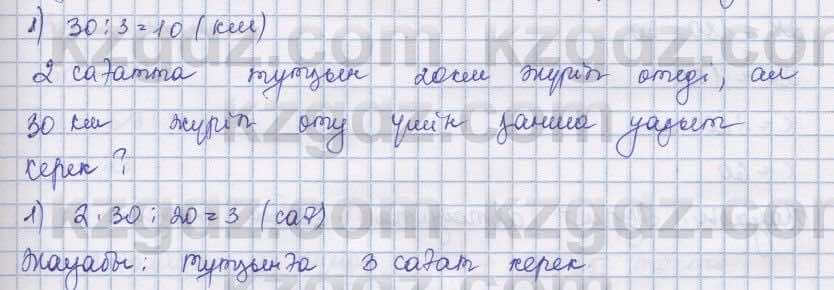 1) 30:3=10 (км)
2 сағатта тұтқын 20км жүріп өтеді, ал
30 км жүріп өту үшін қанша уақыт
керек?
1) 2·30:20=3 (сағ)
Жауабы: тұтқынға 3 сағат керек.
kzgdz.com kzgdz.com
kzgdz.com kzgdz.com